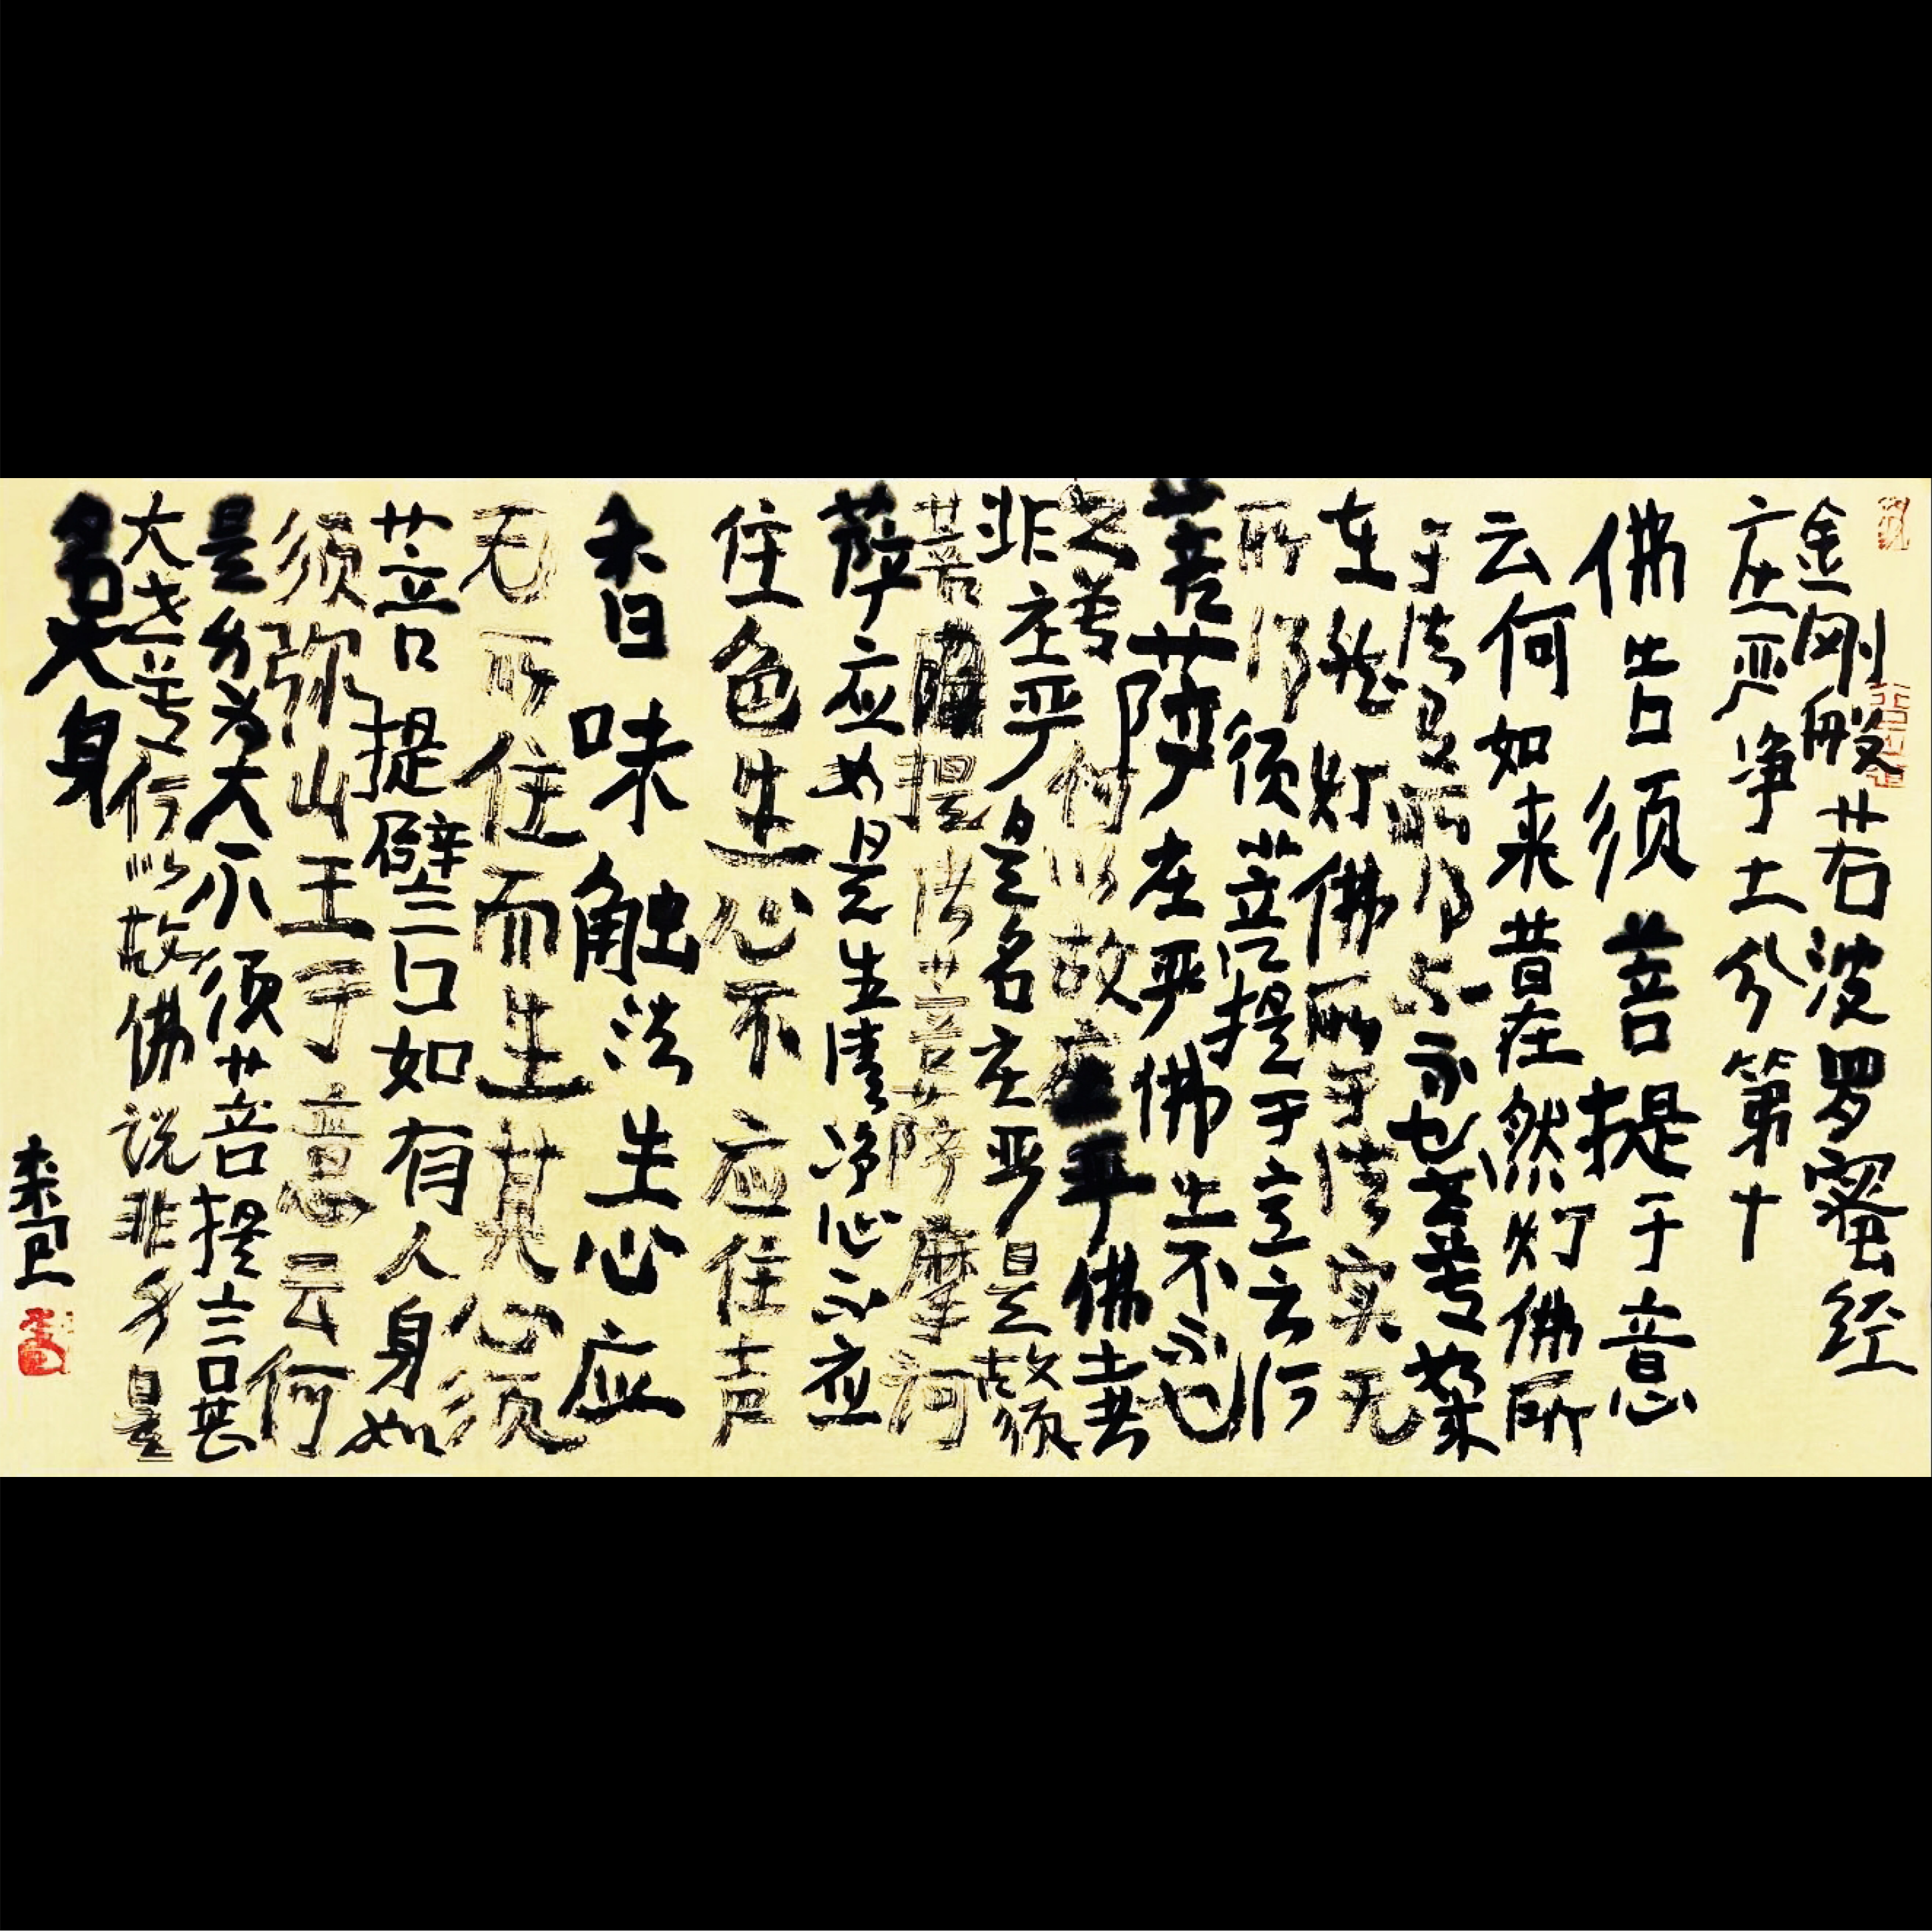 金刚般若波罗蜜经
庄严净土分第十
佛告须菩提于意
云何如来昔在然灯佛所
于法有所得不不也世尊如来
在然灯佛所于法实无
所得须菩提于意云何
菩萨庄严佛土不不也
世尊何以故庄严佛土者
非庄严是名庄严是故须
菩提诸菩萨摩诃
萨应如是生清净心不应
住色生心不应住声
香味触法生心应
无所住而生其心须
菩提譬如有人身如
须弥山王于意云何
是身为大不须菩提言甚
大世尊何以故佛说非身是
名大身